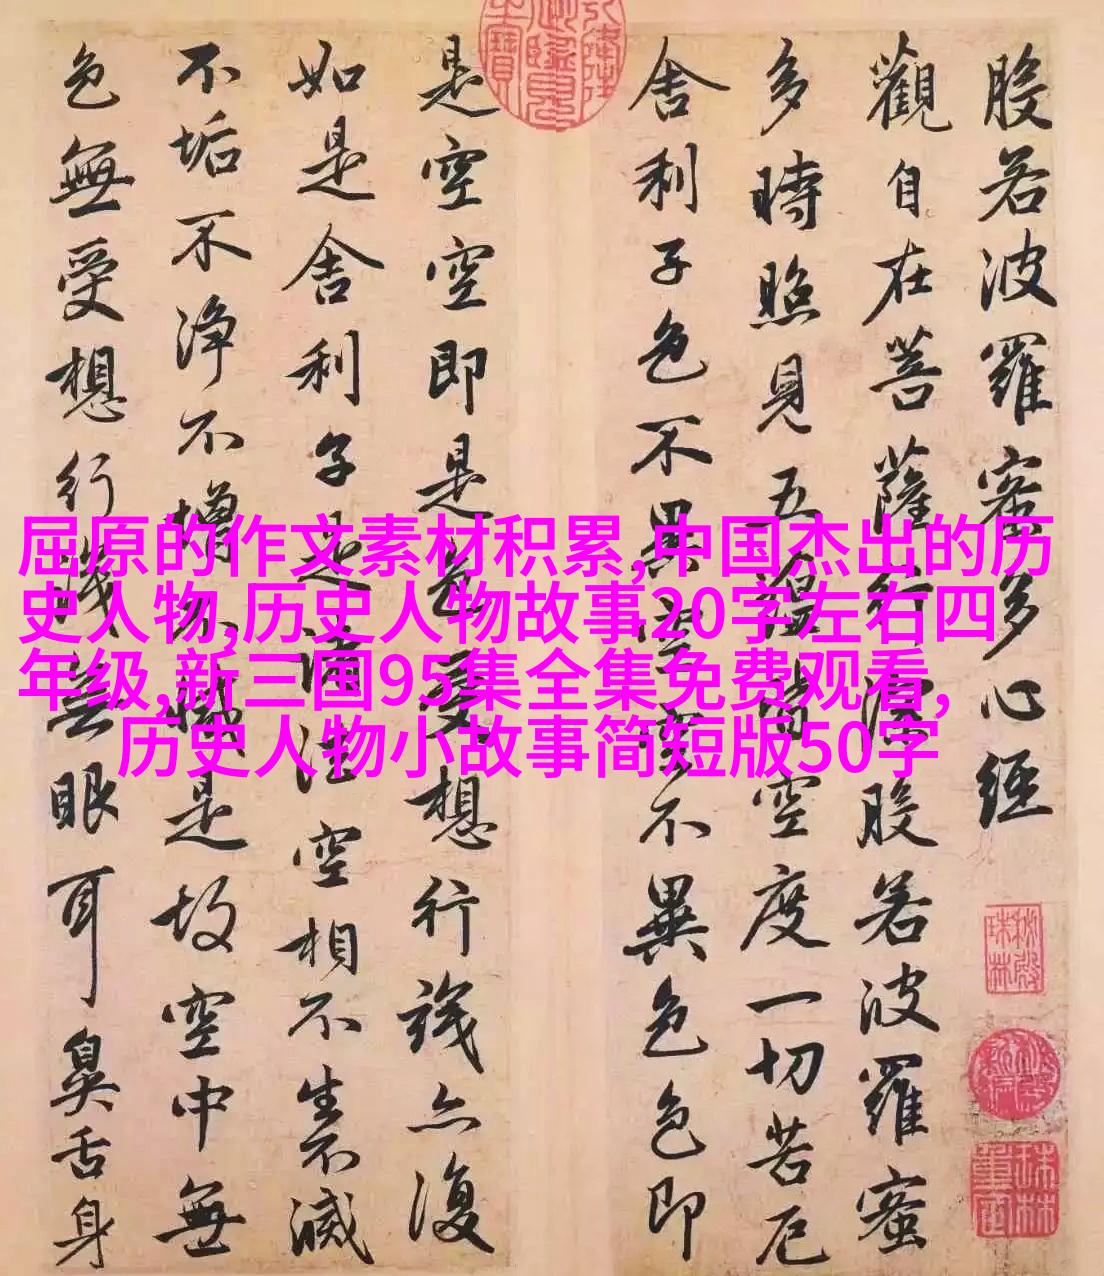 般若波羅蜜多心經
觀自在菩薩行深般若波羅蜜
多時照見五蘊皆空度一切苦厄
舍利子色不異空空不異色色即
是空空即是色受想行識亦復
如是舍利子是諸法空相不生不滅
不垢不淨不增不減是故空中無
色無受想行識無眼耳鼻舌身
屈原的作文素材积累,中国杰出的历
史人物,历史人物故事20字左右四
年级,新三国95集全集免费观看,
历史人物小故事简短版50字